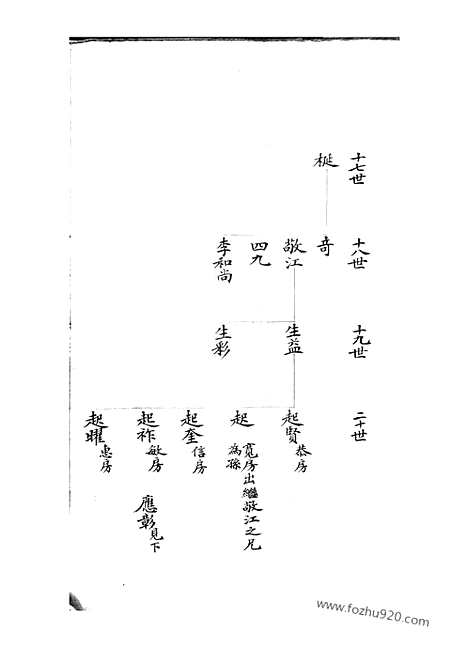 十七世
梴
十八世
奇
敬江
四九
李和尚
十九世
生益
生彩
二十世
起賢 恭房
起 寬房出繼敬江之兄
為孫
起奎 信房
起祚 敏房 應彰 見下
起曜 惠房
www.fozhu920.com